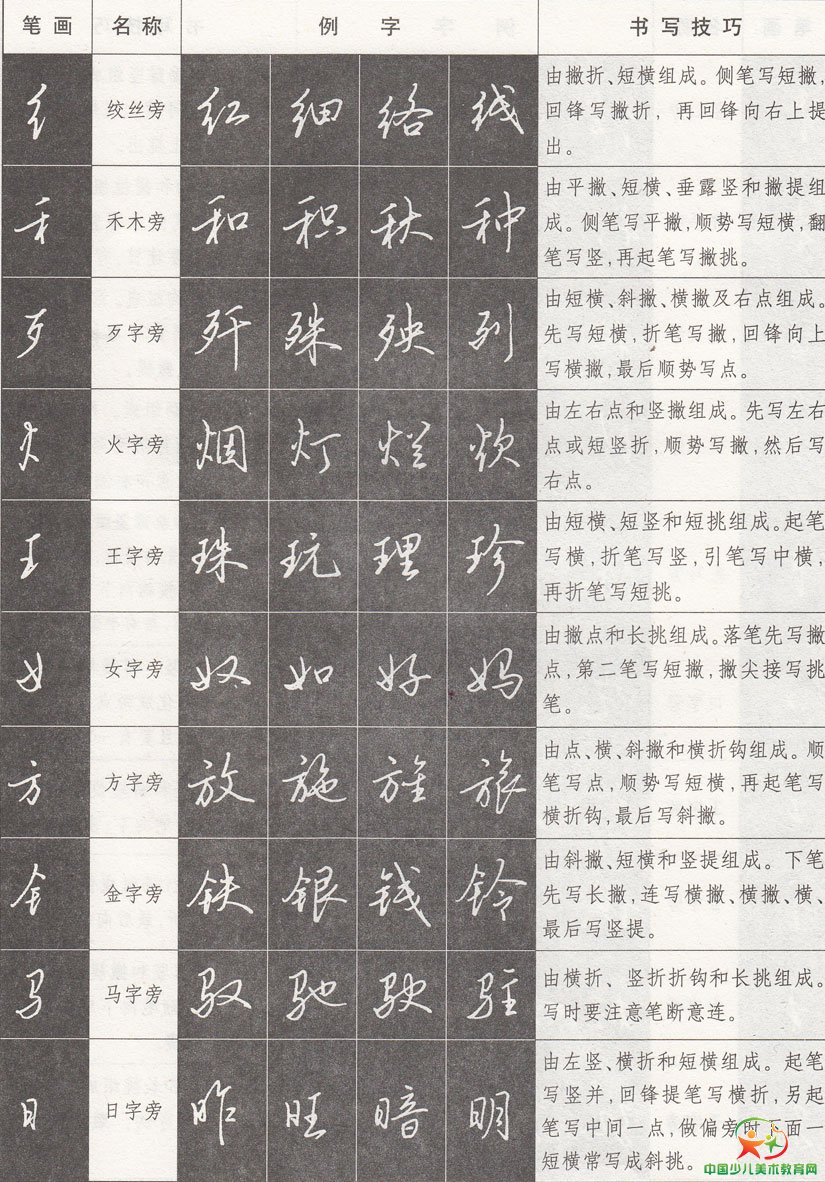 笔画 名称 例字 书写技巧
纟 绞丝旁 红 细 络 线
由撇折、短横组成。侧笔写短撇,
回锋写撇折, 再回锋向右上提
出。
禾 禾木旁 和 积 秋 种
由平撇、短横、垂露竖和撇提组
成。侧笔写平撇,顺势写短横,翻
笔写竖,再起笔写撇挑。
歹 歹字旁 歼 殊 殃 列
由短横、斜撇、横撇及右点组成。
先写短横,折笔写撇,回锋向上
写横撇,最后顺势写点。
火 火字旁 烟 灯 烂 炊
由左右点和竖撇组成。先写左右
点或短竖折,顺势写撇,然后写
右点。
王 王字旁 珠 玩 理 珍
由短横、短竖和短挑组成。起笔
写横,折笔写竖,引笔写中横,
再折笔写短挑。
女 女字旁 奴 如 好 妈
由撇点和长挑组成。落笔先写撇
点,第二笔写短撇,撇尖接写挑
笔。
方 方字旁 放 施 旌 旅
由点、横、斜撇和横折钩组成。顺
笔写点,顺势写短横,再起笔写
横折钩,最后写斜撇。
钅 金字旁 铁 银 钱 铃
由斜撇、短横和竖提组成。下笔
先写长撇,连写横撇、横撇、横、
最后写竖提。
马 马字旁 驭 驰 驶 驻
由横折、竖折折钩和长挑组成。
写时要注意笔断意连。
日 日字旁 昨 旺 暗 明
由左竖、横折和短横组成。起笔
写竖并,回锋提笔写横折,另起
笔写中间一点,做偏旁时下面一
短横常写成斜挑。
中国少儿美术教育网